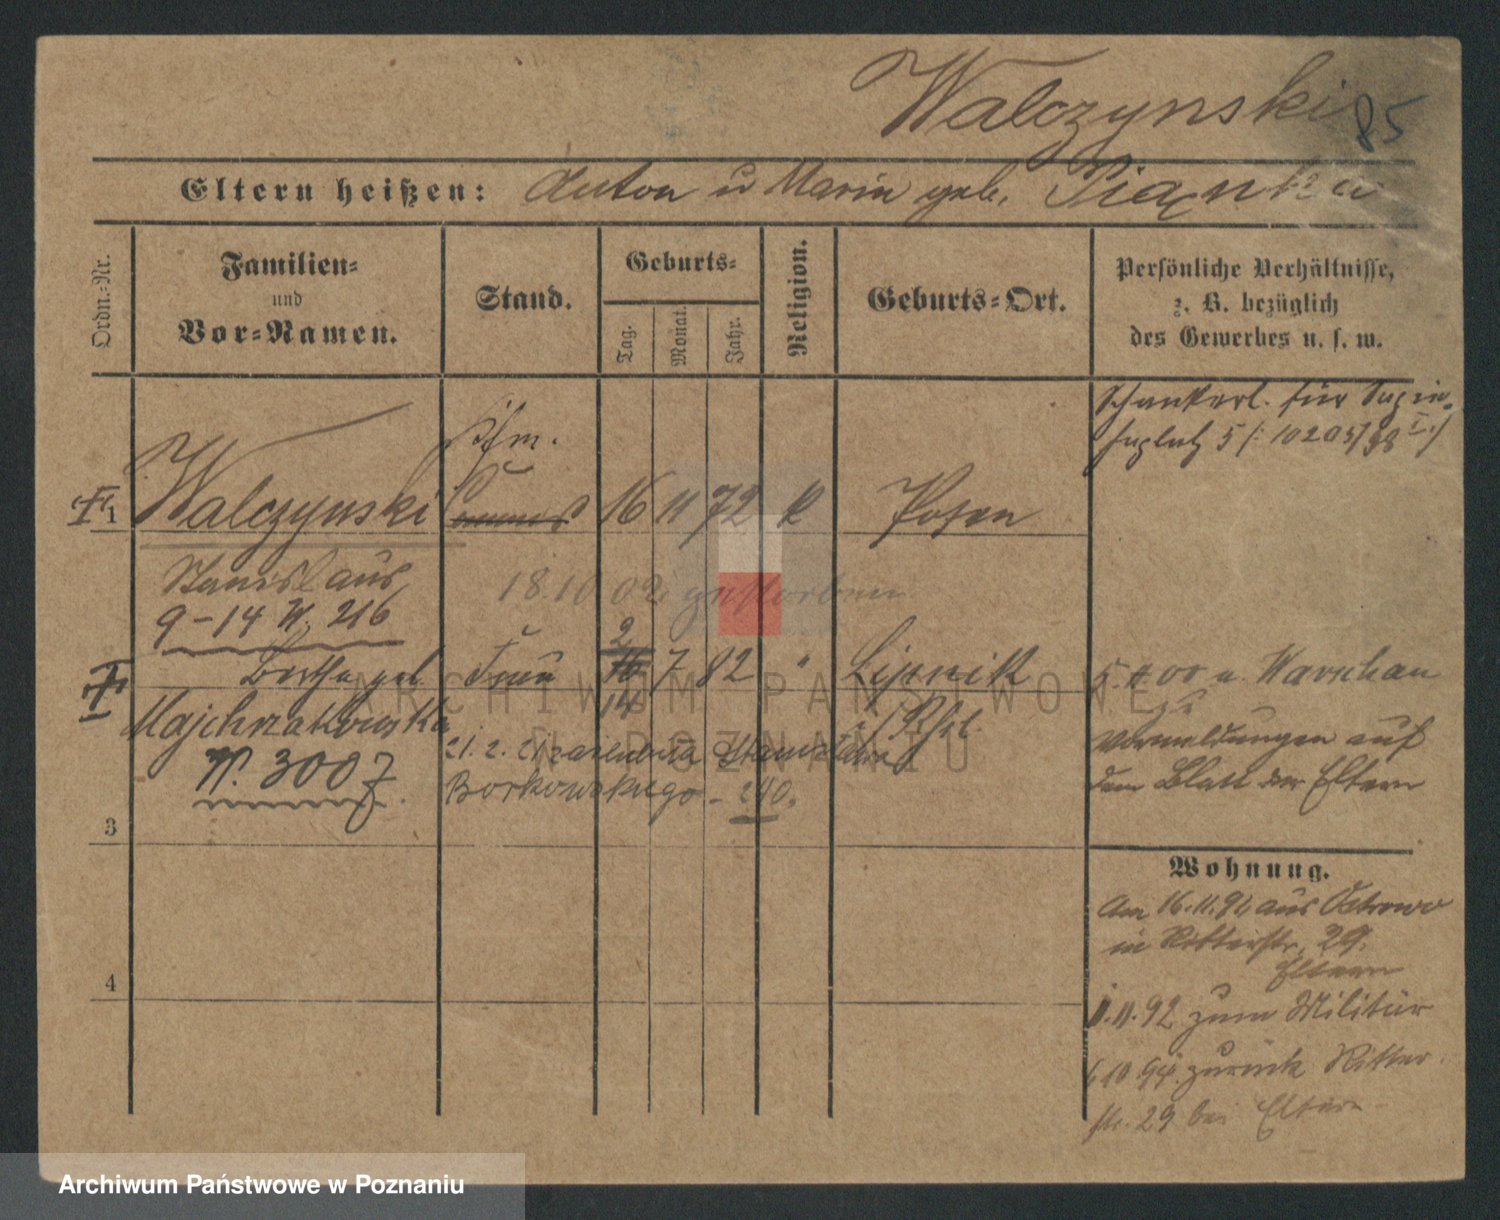 Walczynski 85
Eltern heißen: Anton u Marie geb. Piaçnka
Ordn.-Nr.
Familien-
und
Vor-Namen.
Stand.
Geburts-
Tag.
Monat.
Jahr.
Religion.
Geburts-Ort.
Persönliche Verhältnisse,
z. B. bezüglich
des Gewerbes u. s. w.
Schankerl. für
5 /: 10205/98 I :/
1 Walczynski 16 11 72 k Posen
Stanislaus
18.10.02 gestorben
9-14 N. 216
Bertha geb. Frau 2 16 7 82 " Lipnik 5.4.00 n. Warschau
14
Majchrzakowska
N. 3007
21.2.21 Stanisława
Borkowskiego - 240.
Vormeldungen auf
dem Blatt der Eltern
3
Wohnung.
Am 16.11.91 aus Ostrowo
in Ritterstr. 29.
Eltern
4
11.92 zum Militär
10.94 zurück Ritter
str. 29 bei Eltern
ARCHIWUM PAŃSTWOWE
W POZNANIU
Archiwum Państwowe w Poznaniu